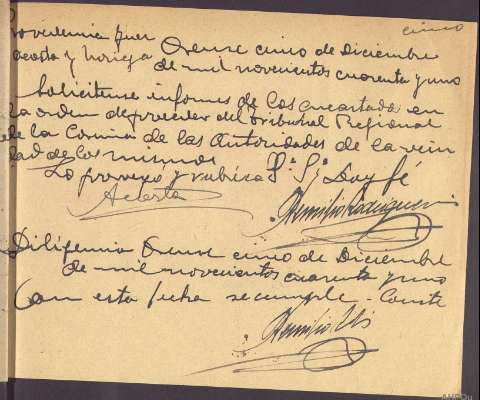 cinco
Providencia Juez
Acosta y Noriega Orense cinco de Diciembre
de mil novecientos cuarenta y uno
Solicitense informes de los encartados en
la orden de proceder del Tribunal Regional
de la Coruña de las Autoridades de la vecin
dad de los mismos
Lo proveyo y rubrica S.ª S.ª Doy fé
Acosta
Diligencia Orense cinco de Diciembre
de mil novecientos cuarenta y uno
Con esta fecha se cumple - Conste